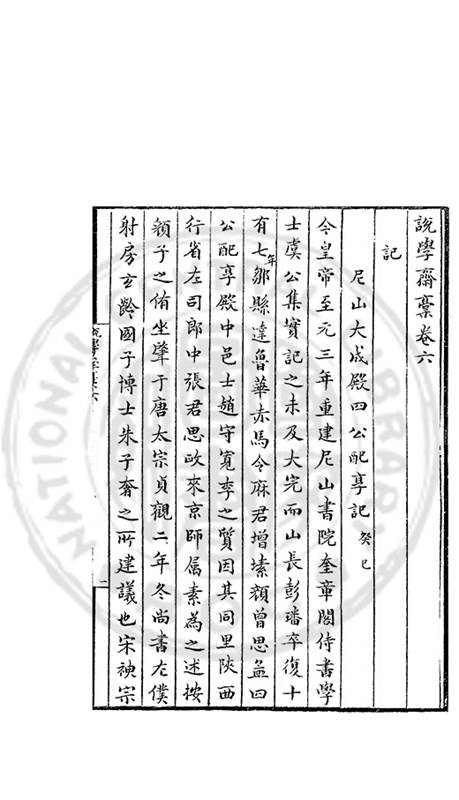 說學齋稾卷六
記
尼山大成殿四公配享記癸巳
今皇帝至元三年重建尼山書院奎章閣侍書學
士虞公集實記之未及大完而山長彭璠卒復十
有七年鄒縣達魯華赤馬令麻君增塐顏曾思孟四
公配享殿中邑士趙守寬李之質因其同里陝西
行省左司郎中張君思政來京師属素為之述按
顏子之侑坐肇于唐太宗貞觀二年冬尚書左僕
射房玄齡國子博士朱子奢之所建議也宋神宗